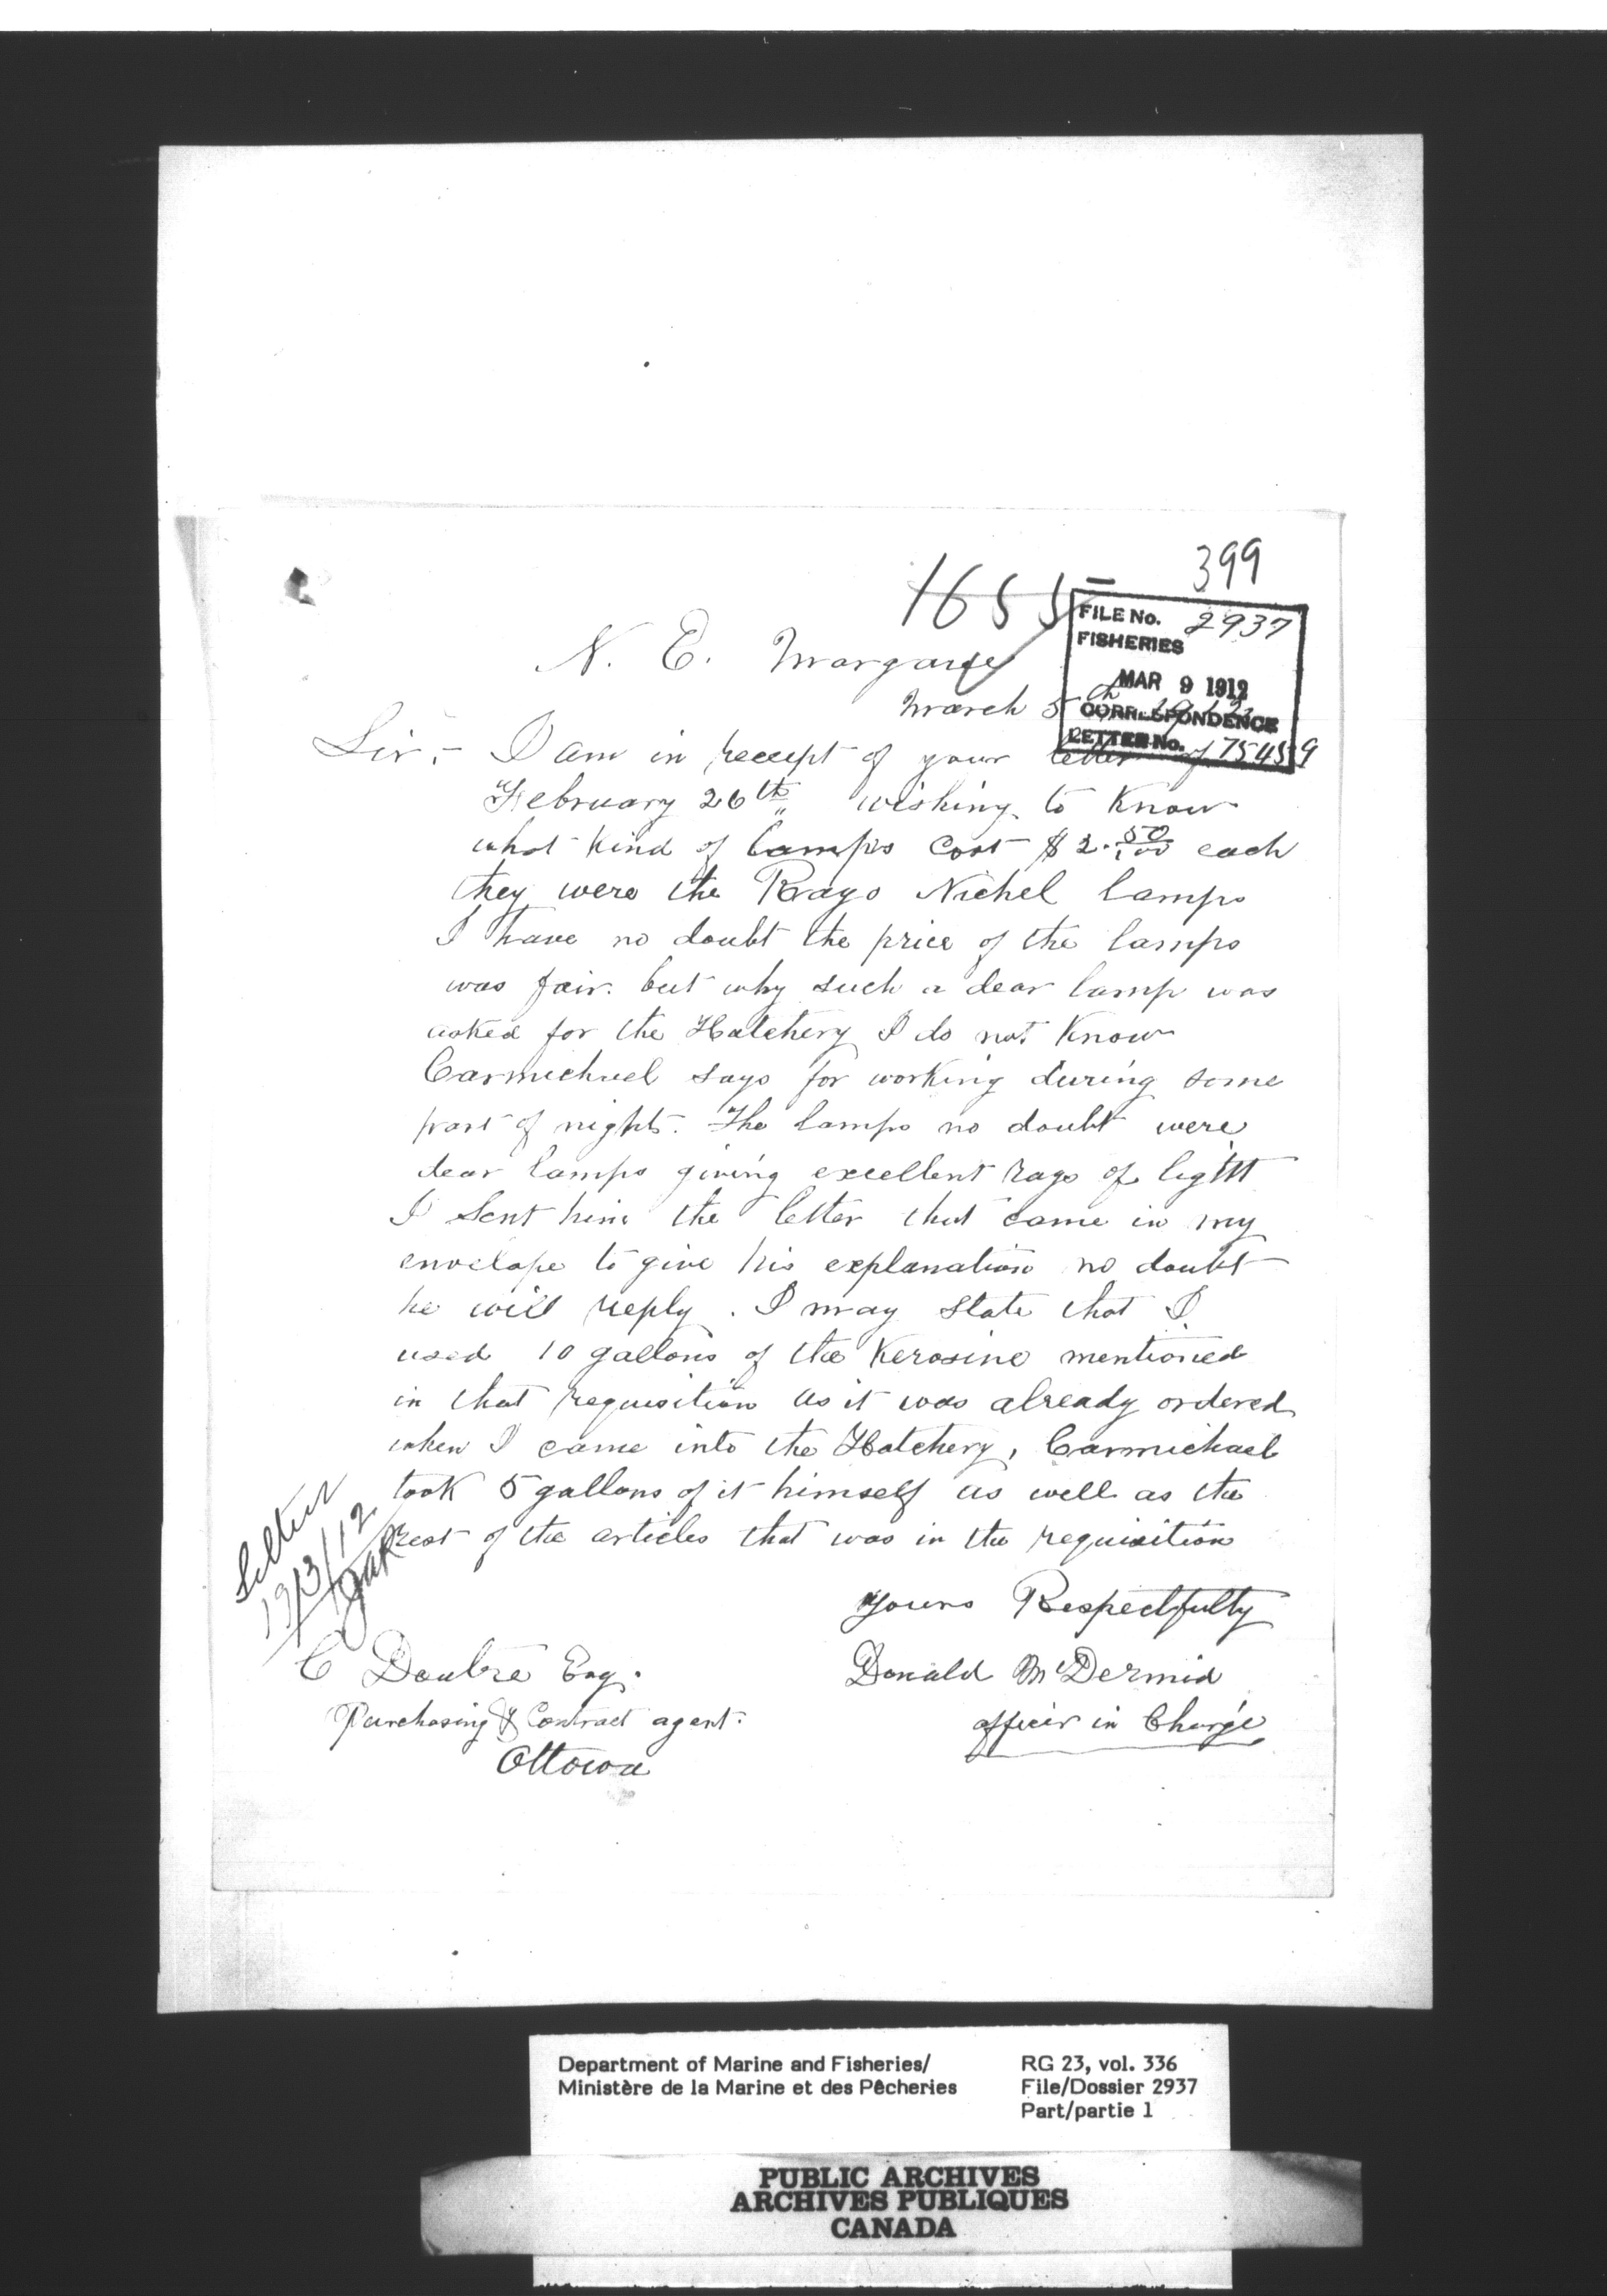 399
1655
FILE No. 2937
FISHERIES
MAR 9 1912
CORRESPONDENCE
LETTER No. 75459
N. E. Margaree
March 5th
Sir,- I am in receipt of your letter of
February 26th wishing to Know
what Kind of lamps cost $2.50/100 each
they were the Rayo Nickel lamps
I have no doubt the price of the lamps
was fair. but why such a dear lamp was
asked for the Hatchery I do not Know
Carmichael says for working during some
part of night. The lamps no doubt were
dear lamps giving excellent rays of light
I sent him the letter that came in my
envelope to give his explanation no doubt
he will reply. I may state that I
used 10 gallons of the Kerosine mentioned
in that requisition as it was already ordered
when I came into the Hatchery, Carmichael
took 5 gallons of it himself as well as the
rest of the articles that was in the requisition
19/3/12
Yours Respectfully
C Doutre Esq.
Donald McDermid
Purchasing & Contract agent.
officer in Charge
Ottowa
Department of Marine and Fisheries/
Ministère de la Marine et des Pêcheries
RG 23, vol. 336
File/Dossier 2937
Part/partie 1
PUBLIC ARCHIVES
ARCHIVES PUBLIQUES
CANADA